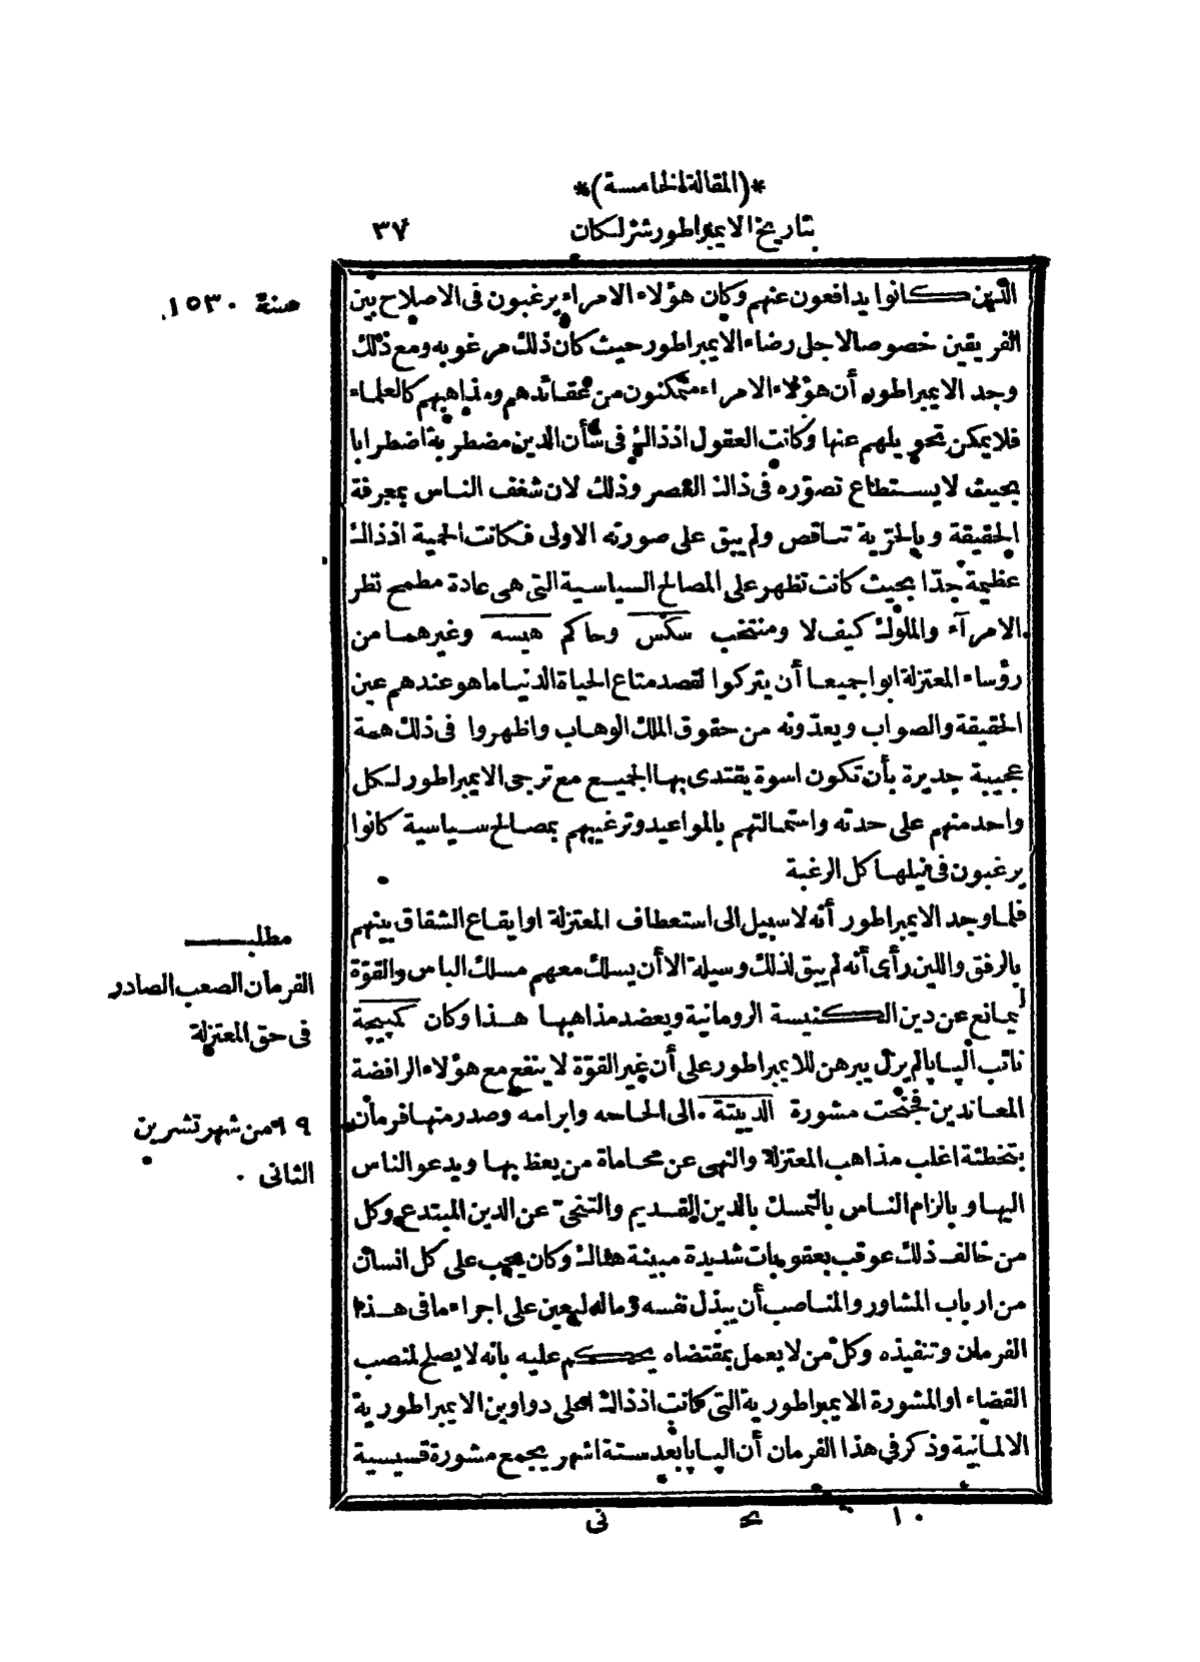 *(المقالة الخامسة)*
بتاريخ الايمبراطور شرلكان
٣٧
سنة ١٥٣٠
الذين كانوا يدافعون عنهم وكان هؤلاء الامراء يرغبون فى الاصلاح بين
الفريقين خصوصا لاجل رضاء الايمبراطور حيث كان ذلك مرغوبه ومع ذلك
وجد الايمبراطور أن هؤلاء الامراء متمكنون من عقائدهم ومذاهبهم كالعلماء
فلا يمكن تحويلهم عنها وكانت العقول اذ ذاك فى شأن الدين مضطربة اضطرابا
بحيث لا يستطاع تصوّره فى ذاك العصر وذلك لان شغف الناس بمعرفة
الحقيقة وبالحرّية تناقص ولم يبق على صورته الاولى فكانت الحمية اذ ذاك
عظيمة جدّا بحيث كانت تظهر على المصالح السياسية التى هى عادة مطمح نظر
الامرآء والملوك كيف لا ومنتخب سكس وحاكم هيسه وغيرهما من
رؤساء المعتزلة ابوا جميعا أن يتركوا لقصد متاع الحياة الدنيا ما هو عندهم عين
الحقيقة والصواب ويعدّونه من حقوق الملك الوهاب واظهروا فى ذلك همة
عجيبة جديرة بأن تكون اسوة يقتدى بها الجميع مع ترجى الايمبراطور لكل
واحد منهم على حدته واستمالتهم بالمواعيد وترغيبهم بمصالح سياسية كانوا
يرغبون فى نيلها كل الرغبة
فلما وجد الايمبراطور أنه لا سبيل الى استعطاف المعتزلة او ايقاع الشقاق بينهم
بالرفق واللين رأى أنه لم يبق لذلك وسيلة الا أن يسلك معهم مسلك الباس والقوّة
ليمانع عن دين الكنيسة الرومانية ويعضد مذاهبها هذا وكان كمپيجة
نائب الپاپا لم يزل يبرهن للايمبراطور على أن غير القوّة لا ينفع مع هؤلاء الرافضة
المعاندين فجنحت مشورة الديتة الى الحاحه وابرامه وصدر منها فرمان
بتخطئة اغلب مذاهب المعتزلة والنهى عن محاماة من يعظ بها ويدعو الناس
اليها وبالزام الناس بالتمسك بالدين القديم والتنحى عن الدين المبتدع وكل
من خالف ذلك عوقب بعقوبات شديدة مبينة هناك وكان يجب على كل انسان
من ارباب المشاور والمناصب أن يبذل نفسه وماله ليعين على اجراء ما فى هذا
الفرمان وتنفيذه وكل من لا يعمل بمقتضاه يحكم عليه بانه لا يصلح لمنصب
القضاء او المشورة الايمبراطورية التى كانت اذ ذاك اعلى دواوين الايمبراطورية
الالمانية وذكر فى هذا الفرمان أن الپاپا بعد ستة اشهر يجمع مشورة قسيسية
مطلب
الفرمان الصعب الصادر
فى حق المعتزلة
١٩ من شهر تشرين
الثانى
١٠
نى